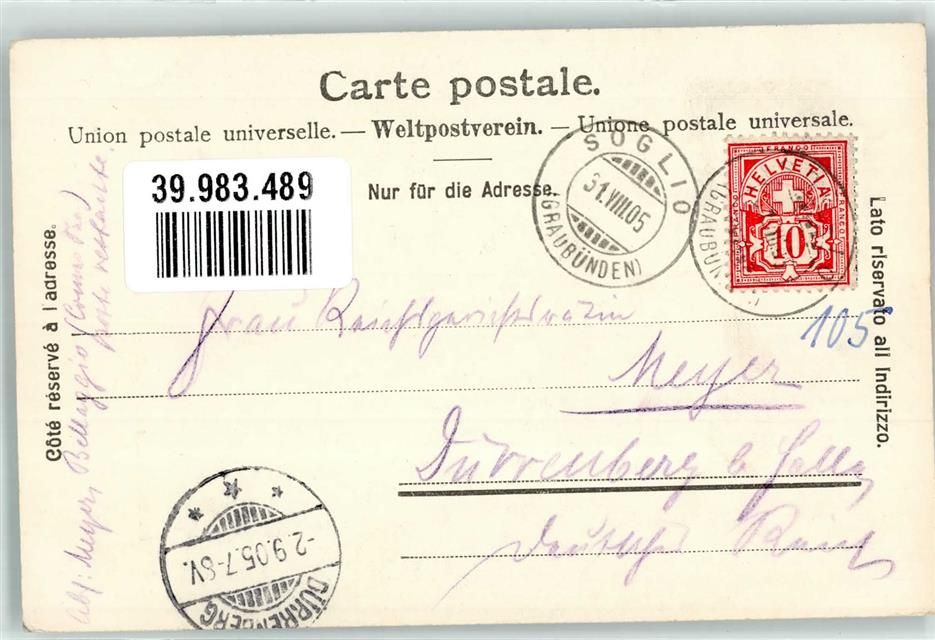 Carte postale.
Union postale universelle. — Weltpostverein. — Unione postale universale.
Nur für die Adresse.
39.983.489
SOGLIO
31.VIII.05
(GRAUBÜNDEN)
FRANCO
HELVETIA
10
(GRAUBÜN
105
Côté réservé à l'adresse.
Lato riservato all Indirizzo.
Frau Reichsgerichtsrätin
Meyer
Dürrenberg b Halle
Deutsches Reich
Abs: Meyer, Bellaggio (Como
poste restante
-2.9.05.7-8V.
DÜRRENBERG